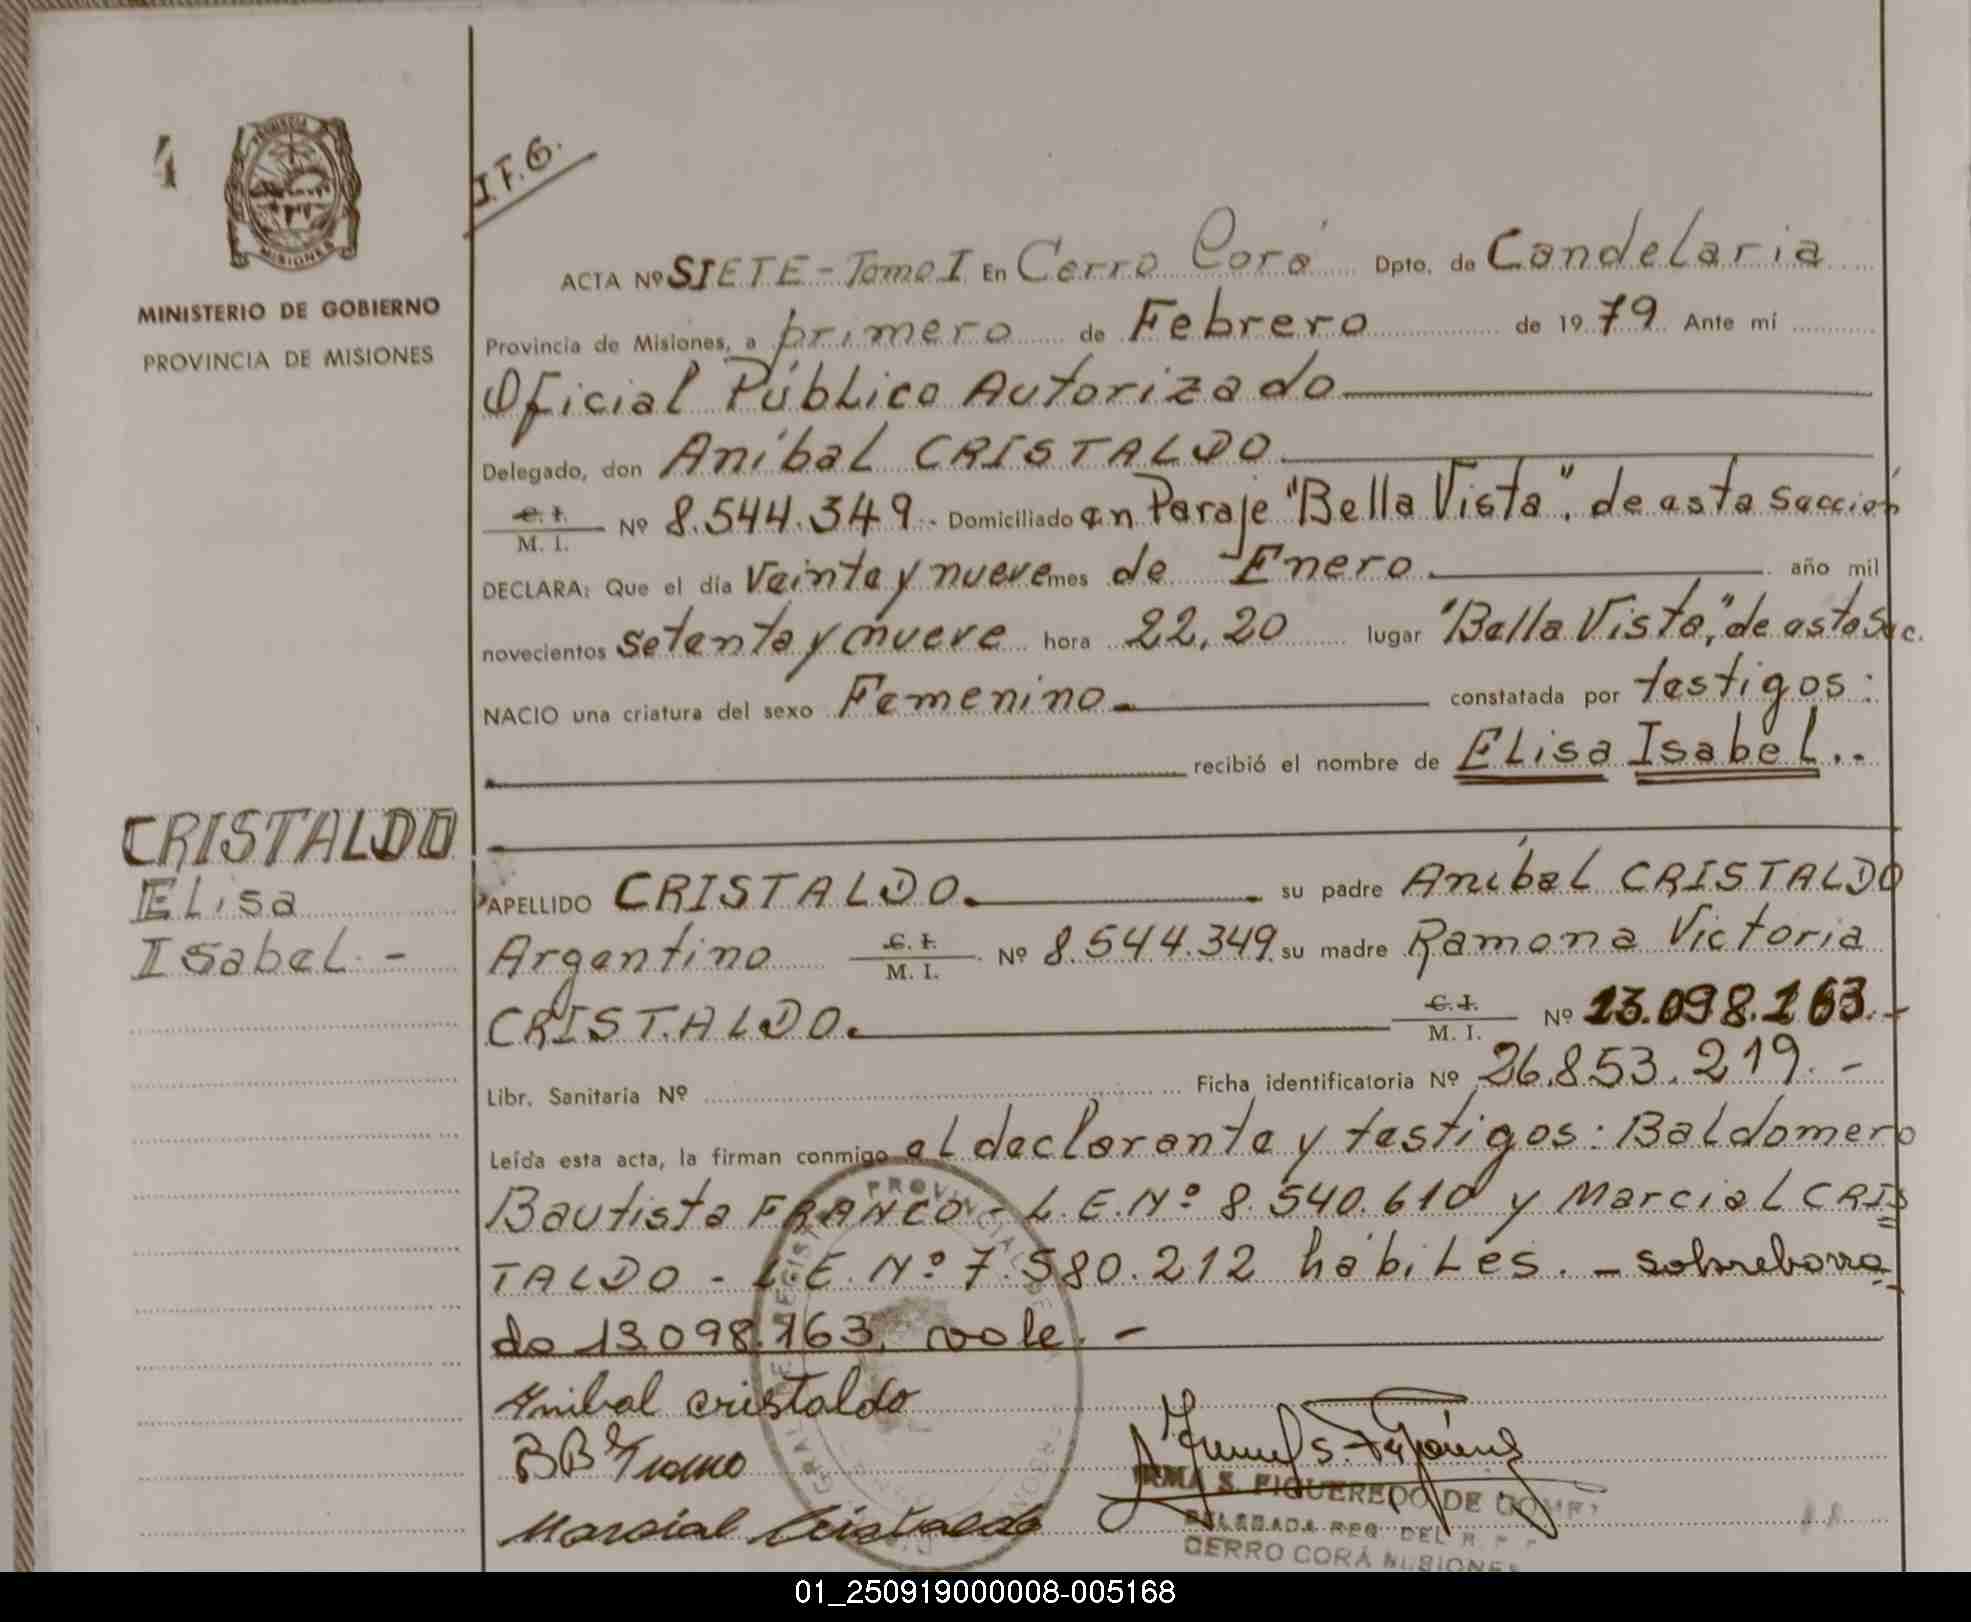 4
PROVINCIA DE
MISIONES
MINISTERIO DE GOBIERNO
PROVINCIA DE MISIONES
J.F.G.
ACTA Nº SIETE - Tomo I En Cerro Corá Dpto. de Candelaria
Provincia de Misiones, a primero de Febrero de 1979 Ante mí
Oficial Público Autorizado
Delegado, don Aníbal CRISTALDO
C. I.
M. I. Nº 8.544.349.- Domiciliado en Paraje "Bella Vista". de esta Sección
DECLARA: Que el día Veinte y nueve mes de Enero año mil
novecientos setenta y nueve hora 22,20 lugar "Bella Vista", de esta Sec.
NACIO una criatura del sexo Femenino constatada por testigos:
recibió el nombre de Elisa Isabel.-
CRISTALDO
Elisa
Isabel.-
APELLIDO CRISTALDO su padre Aníbal CRISTALDO
Argentino C. I.
M. I. Nº 8.544.349. su madre Ramona Victoria
CRISTALDO. C. I.
M. I. Nº 13.098.163.-
Libr. Sanitaria Nº Ficha identificatoria Nº 26.853.219.-
Leída esta acta, la firman conmigo el declarante y testigos: Baldomero
Bautista FRANCO - L.E.Nº 8.540.610 y Marcial CRIS
TALDO - L.E.Nº 7.580.212 hábiles. - sobreborra
do 13.098.163. vale. -
Anibal cristaldo
BB Franco
Marcial Cristaldo
IRMA S. FIGUEREDO DE GOMEZ
DELEGADA REG. DEL R. P.
CERRO CORÁ MISIONES
01_250919000008-005168